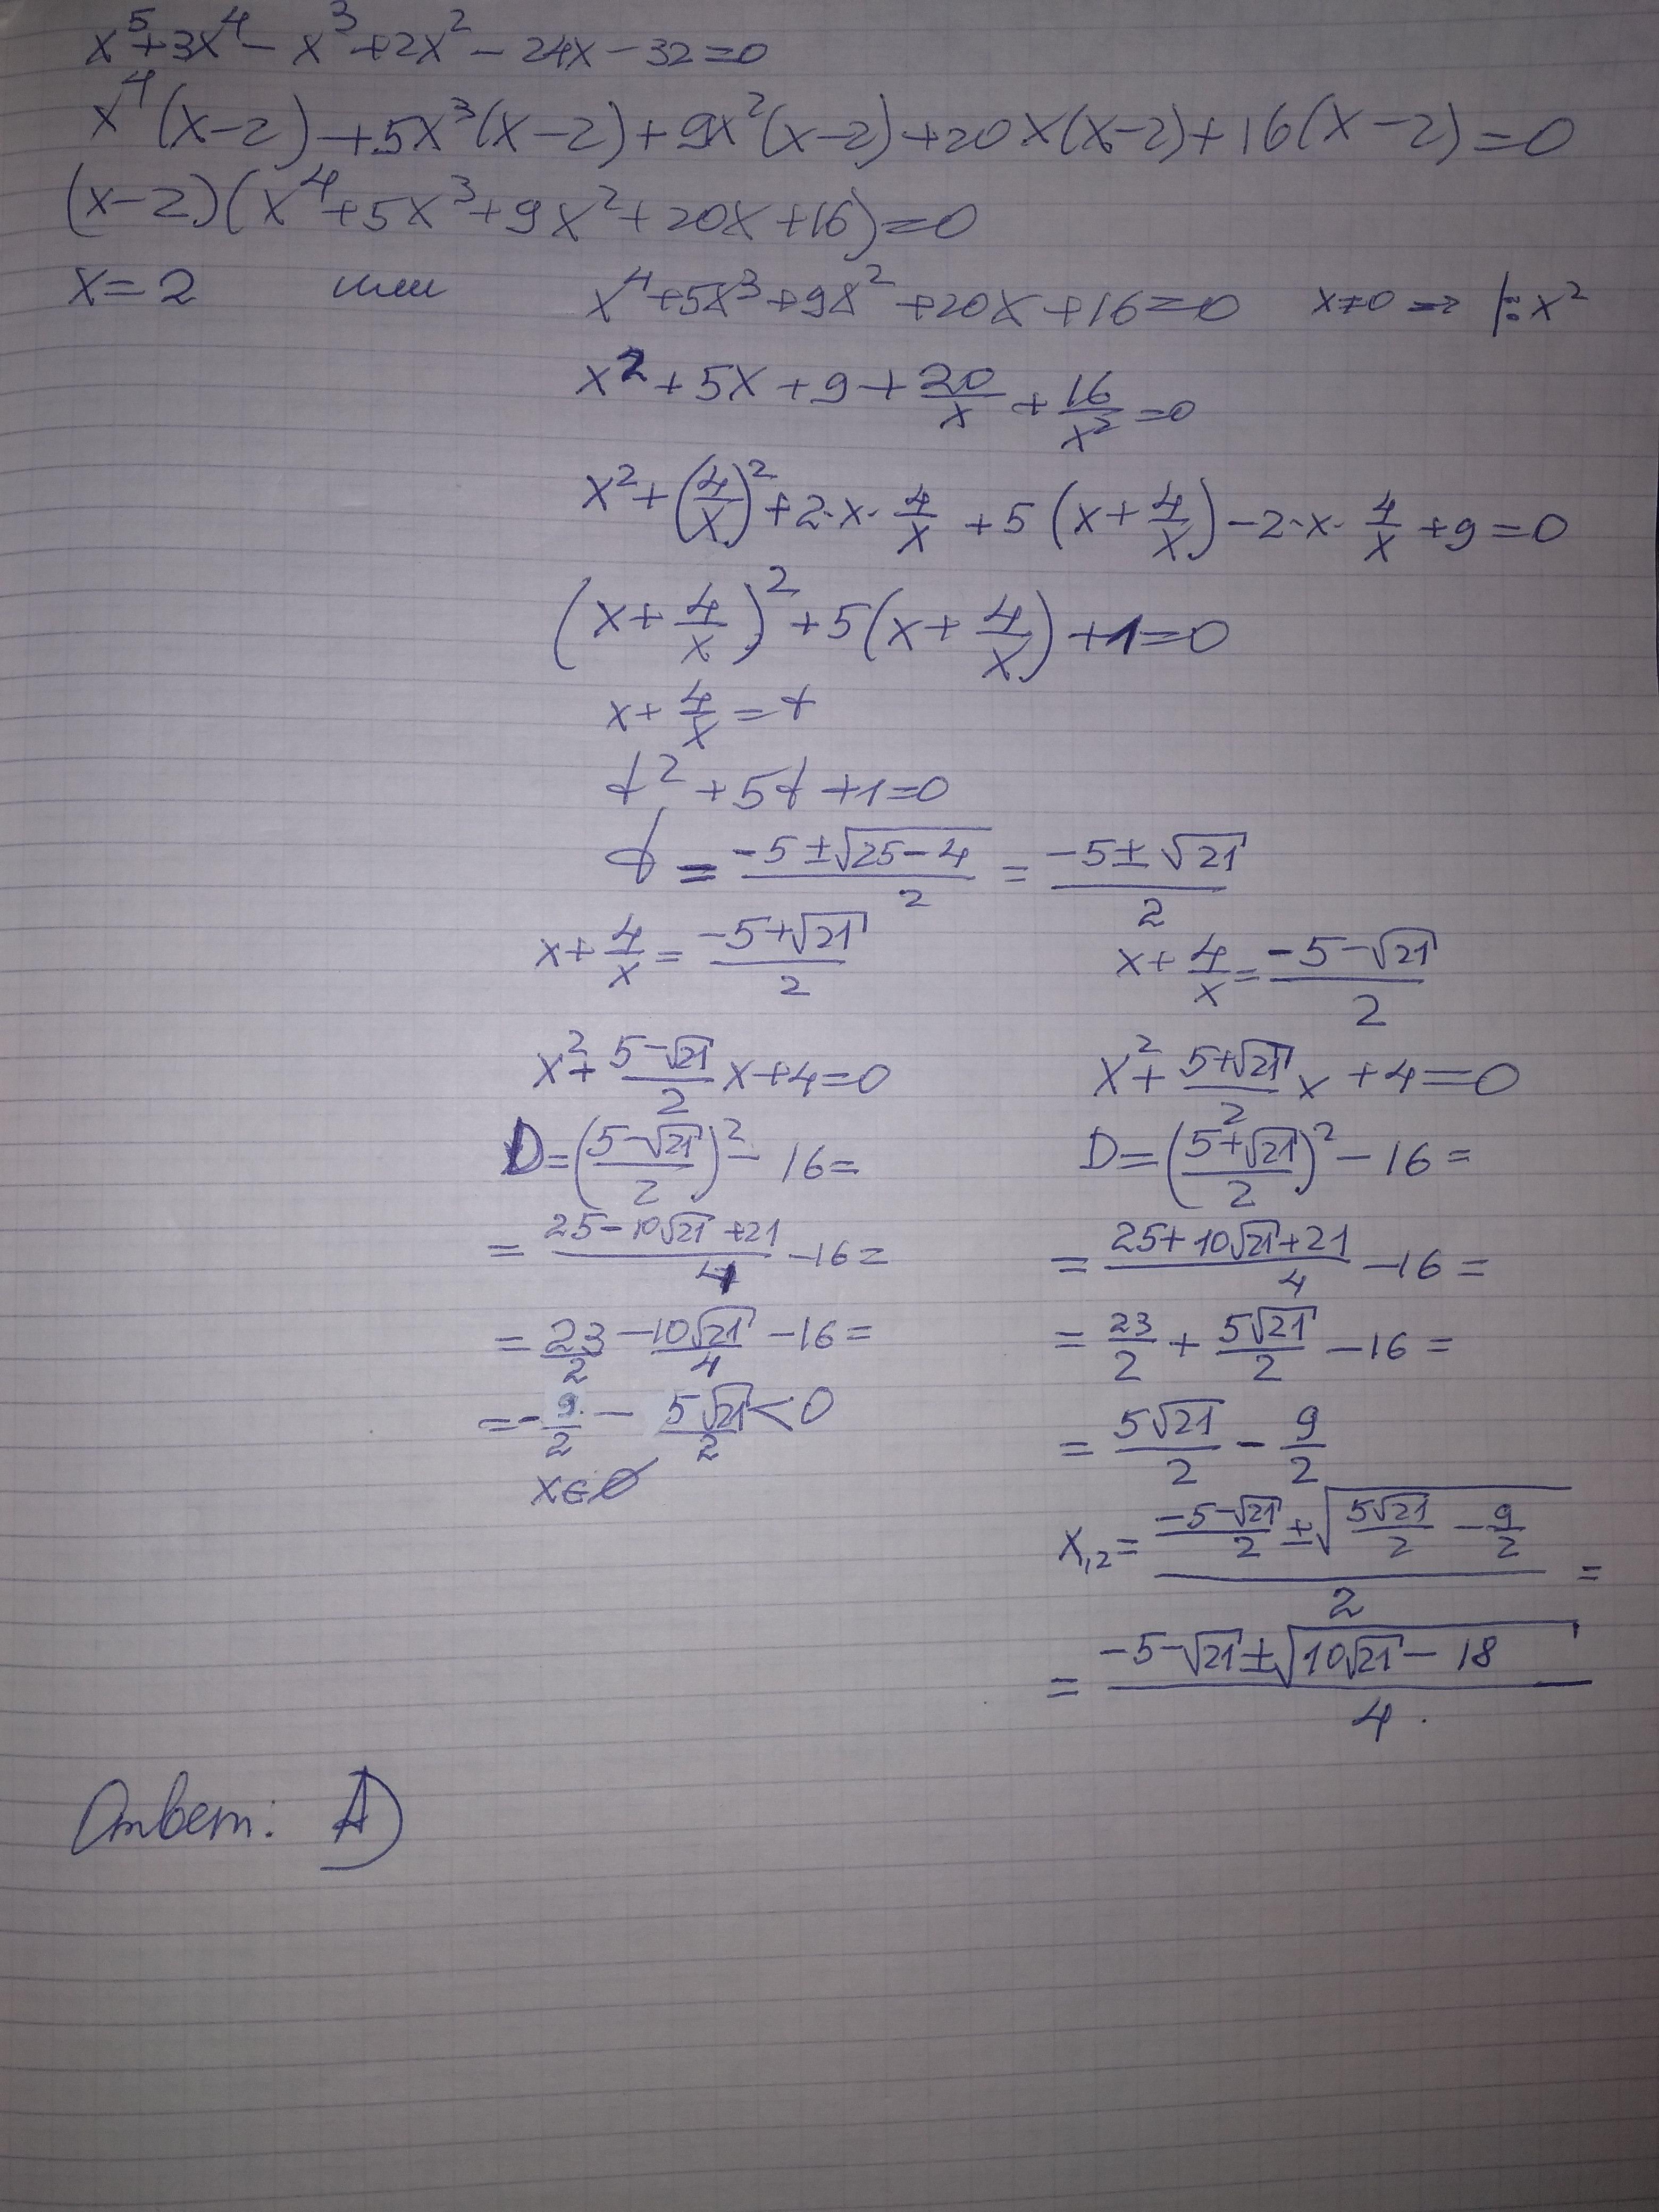 x⁵+3x⁴-x³+2x²-24x-32=0
x⁴(x-2)+5x³(x-2)+9x²(x-2)+20x(x-2)+16(x-2)=0
(x-2)(x⁴+5x³+9x²+20x+16)=0
x=2 или x⁴+5x³+9x²+20x+16=0 x≠0 => |:x²
x²+5x+9+20/x+16/x²=0
x²+(4/x)²+2·x·4/x+5(x+4/x)-2·x·4/x+9=0
(x+4/x)²+5(x+4/x)+1=0
x+4/x=t
t²+5t+1=0
t=(-5±√(25-4))/2=(-5±√21)/2
x+4/x=(-5+√21)/2 x+4/x=(-5-√21)/2
x²+(5-√21)/2 x+4=0 x²+(5+√21)/2 x+4=0
D=((5-√21)/2)²-16= D=((5+√21)/2)²-16=
=(25-10√21+21)/4-16= =(25+10√21+21)/4-16=
=23/2-10√21/4-16= =23/2+5√21/2-16=
=-9/2-5√21/2<0 =5√21/2-9/2
x∈∅
x₁,₂=((-5-√21)/2±√(5√21/2-9/2))/2=
=(-5-√21±√(10√21-18))/4.
Ответ: А)